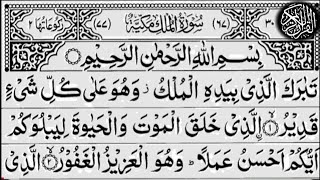 رکوعاتها ٢ (٦٧) سُوْرَةُ الْمُلْكِ مَكِّيَّةٌ (٧٧) ٣٠
بِسْمِ اللّٰهِ الرَّحْمٰنِ الرَّحِيْمِ
تَبٰرَكَ الَّذِيْ بِيَدِهِ الْمُلْكُ ز وَهُوَ عَلٰى كُلِّ شَيْءٍ
قَدِيْرُ ۙ﴿١﴾ الَّذِيْ خَلَقَ الْمَوْتَ وَالْحَيٰوةَ لِيَبْلُوَكُمْ
اَيُّكُمْ اَحْسَنُ عَمَلًا ؕ وَهُوَ الْعَزِيْزُ الْغَفُوْرُ ۙ﴿٢﴾ الَّذِيْ